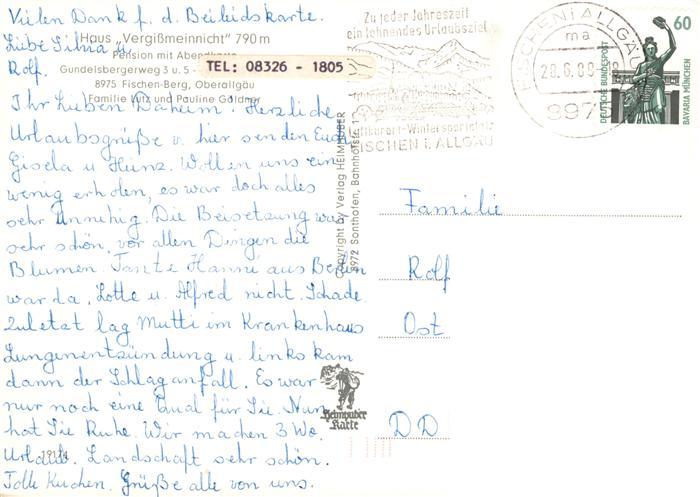 Vielen Dank f. d. Beileidskarte.
Haus „Vergißmeinnicht" 790 m
Pension mit Abend
Gundelsbergerweg 3 u. 5 -
8975 Fischen-Berg, Oberallgäu
Familie Lutz und Pauline Göldner
TEL: 08326 - 1805
Liebe Silvia u.
Rolf.
Ihr Lieben Daheim! Herzliche
Urlaubsgrüße v. hier senden Euch
Gisela u. Heinz. Wollen uns ein
wenig erholen, es war doch alles
sehr unruhig. Die Beisetzung war
sehr schön, vor allen Dingen die
Blumen. Tante Hanni aus Berlin
war da, Lotte u. Alfred nicht. Schade.
Zuletzt lag Mutti im Krankenhaus
Lungenentzündung u. links kam
dann der Schlaganfall. Es war
nur noch eine Qual für Sie. Nun
hat Sie Ruhe. Wir machen 3 Wo.
Urlaub. Landschaft sehr schön.
Tolle Kuchen. Grüße alle von uns.
Copyright by Verlag HEIMHUBER
8972 Sonthofen, Bahnhofstr. 1
Heimhuber
Karte
Zu jeder Jahreszeit
ein lohnendes Urlaubsziel
Luftkurort-Wintersportplatz
FISCHEN i. ALLGÄU
FISCHEN i ALLGÄU
ma
28.6.89
897
60
DEUTSCHE BUNDESPOST
BAVARIA MÜNCHEN
Familie
Rolf
Ost
DD